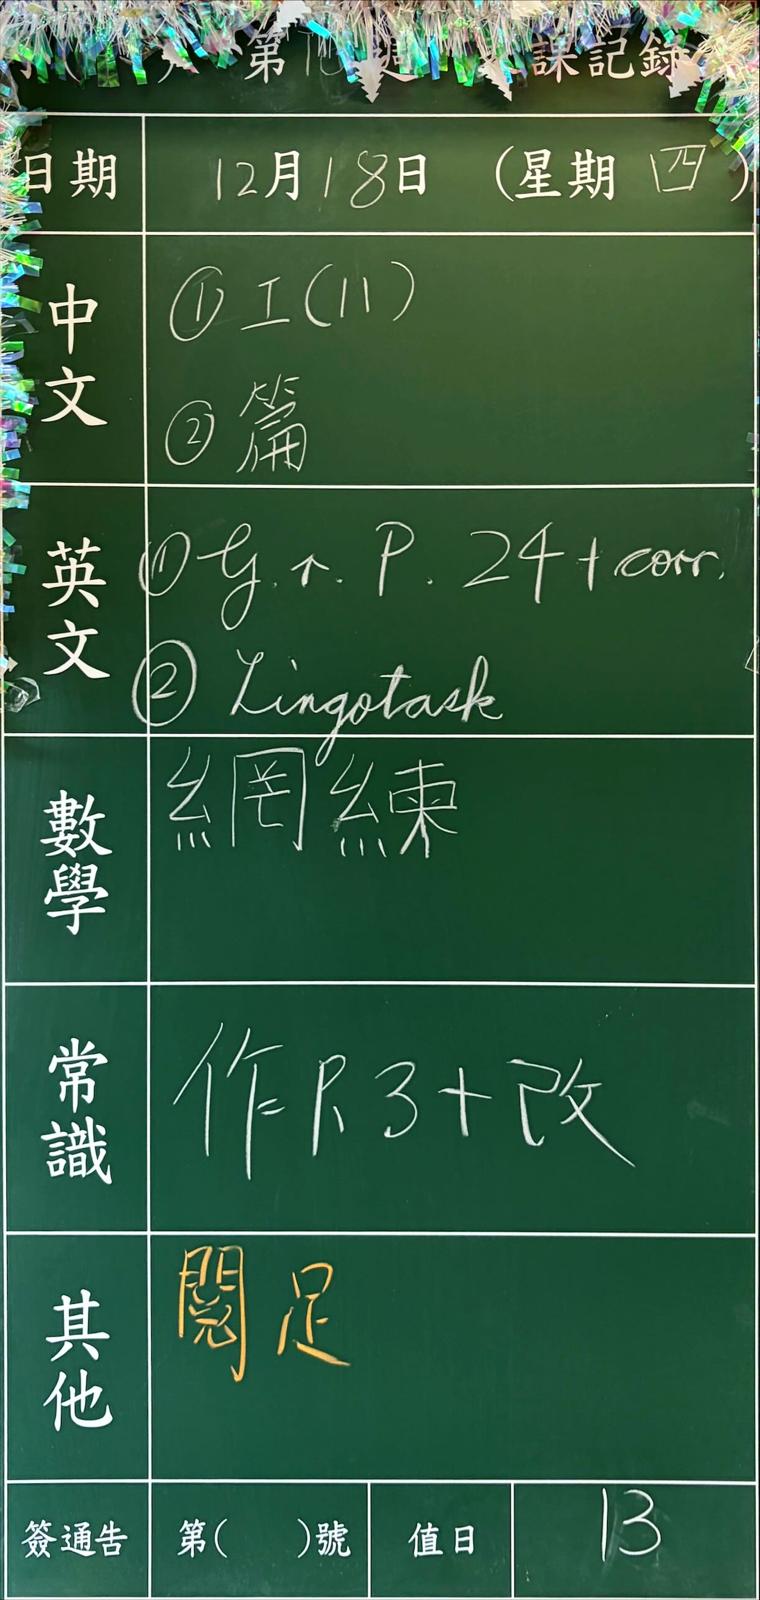 第 週 課記錄
日期 12月18日 (星期 四)
中文
① 工(11)
② 篇
英文
① G. r. P. 24 + corr.
② Lingotask
數學
網練
常識
作 P.3 + 改
其他
閱足
簽通告 第( )號 值日 13